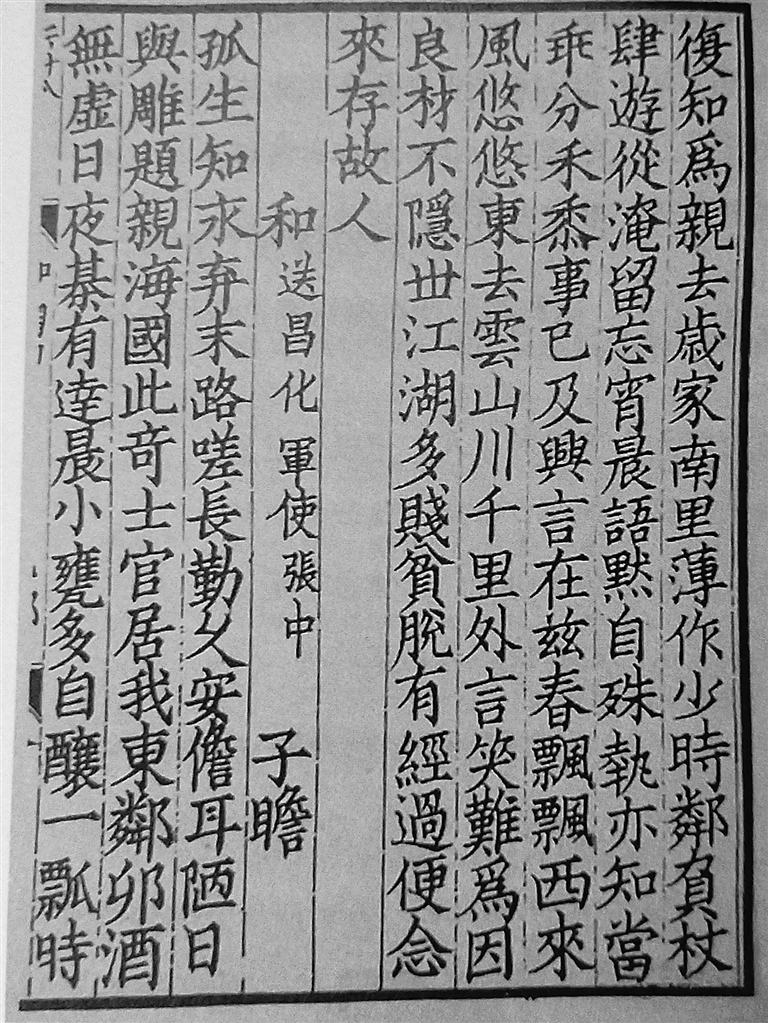 復知爲親去歲家南里薄作少時鄰負杖
肆遊從淹留忘宵晨語默自殊執亦知當
乖分禾黍事已及興言在兹春飄飄西來
風悠悠東去雲山川千里外言笑難爲因
良材不隱丗江湖多賤貧脫有經過便念
來存故人
和送昌化軍使張中 子瞻
孤生知永弃末路嗟長勤久安儋耳陋日
與雕題親海國此奇士官居我東鄰卯酒
無虛日夜棊有達晨小甕多自釀一瓢時